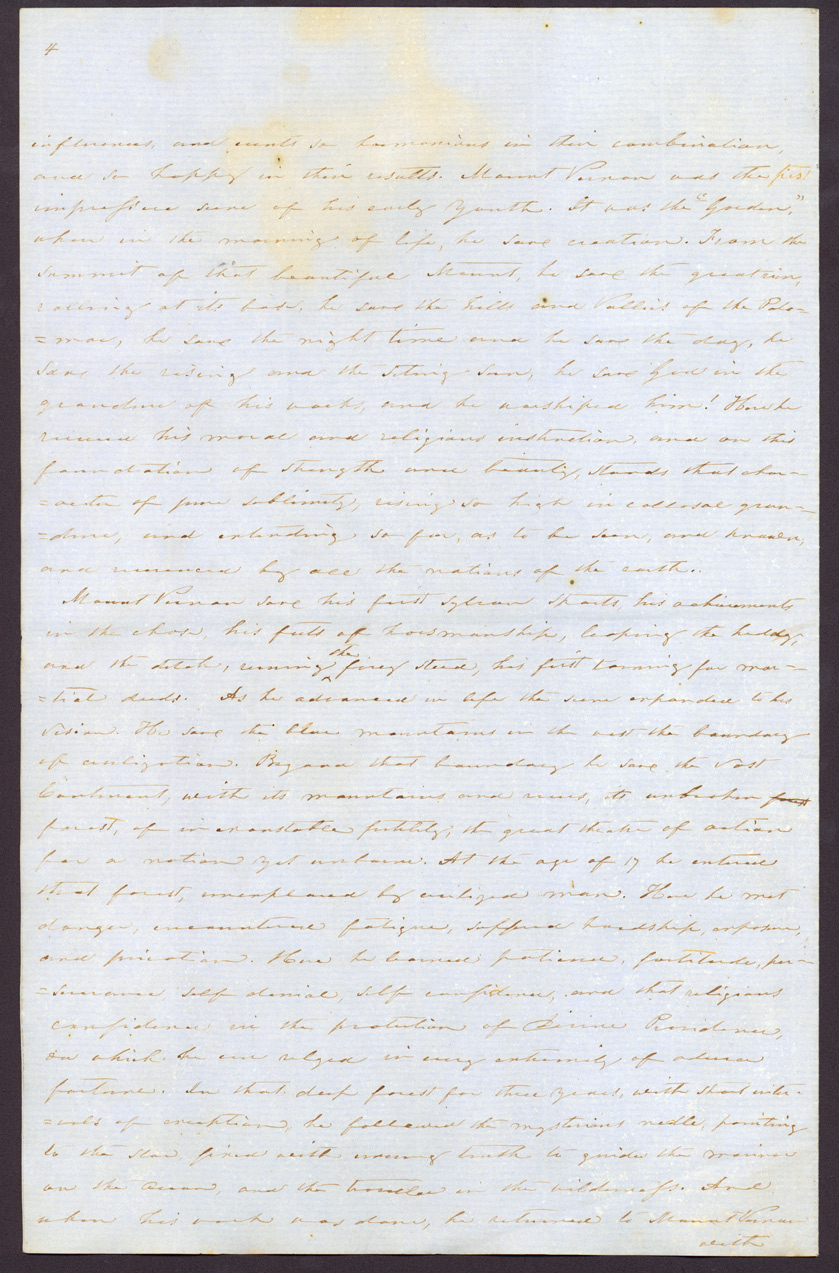 4
influences, and events so harmonious in their combination,
and so happy in their results. Mount Vernon was the first
impressive scene of his early Youth. It was the "Garden,"
when in the morning of life, he saw creation. From the
summit of that beautiful Mount, he saw the great river,
rolling at its base, he saw the hills and Vallies of the Poto=
=mac, he saw the night time and he saw the day, he
saw the rising and the seting sun, he saw God in the
grandure of his works, and he worshiped him! Here he
received his moral and religious instruction, and on this
foundation of strength and beauty, stands that char=
=acter of pure sublimity, rising so high in collosal gran=
=dure, and extending so far, as to be seen, and known,
and reverenced by all the nations of the earth.
Mount Vernon saw his first sylvan sports, his achievements
in the chase, his feats of horsmanship, leaping the hedge,
and the ditch, runing the firey steed, his first training for mar=
=tial deeds. As he advanced in life the scene expanded to his
vision. He saw the blue mountains in the west the boundary
of civilization. Beyond that boundary he saw the Vast
Continent, with its mountains and rivers, its unbroken
forest, of inexaustable fertility; the great theatre of action
for a nation yet unborne. At the age of 17 he entered
that forest, unexplored by civilized man. Here he met
danger, encountered fatigue, suffered hardship, exposure,
and privation. Here he learned patience, fortitude, per=
=severance self denial, self confidence, and that religious
confidence in the protection of Divine Providence,
on which he ever relyed in every extremity of adverse
fortune. In that deep forest for three years, with short inter=
=vals of exception, he followed the mysterious needle, pointing
to the star, fixed with unerring truth to guide the mariner
on the Ocean, and the traveller in the wilderness. And
when his work was done, he returned to Mount Vernon
with